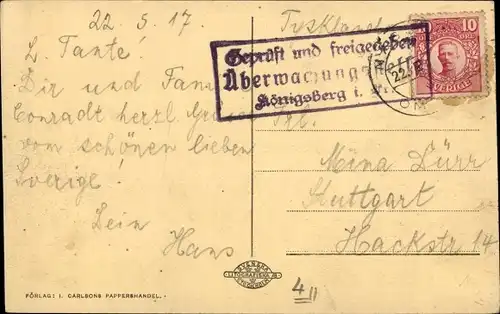 22.5.17
L. Tante!
Dir und Fam.
Conradt herzl. Grüsse
vom schönen lieben
Sverige!
Dein
Hans
Tyskland
Geprüft und freigegeben
Überwachungs
Königsberg i. Pr.
10
ÖRE
SVERIGE
Frl.
Mina Dürr
Stuttgart
Hackstr. 14
4 II
SVENSKA
FÖRLAG: I. CARLSONS PAPPERSHANDEL.